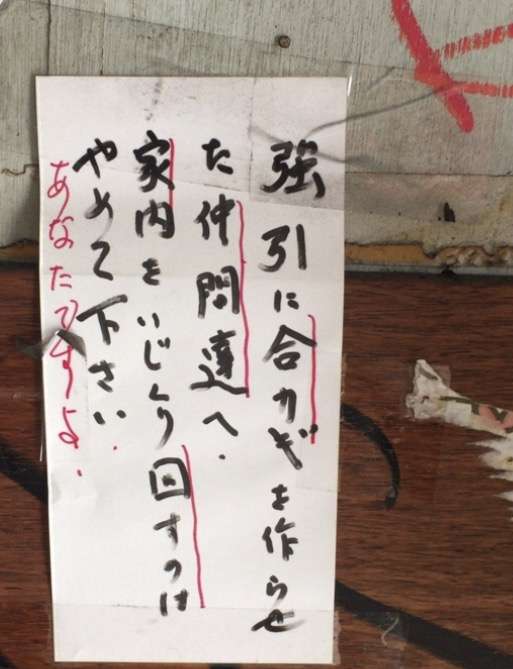 強引に合カギを作らせ
た仲間達へ.
家内をいじくり回すのは
やめて下さい.
あなたですよ.